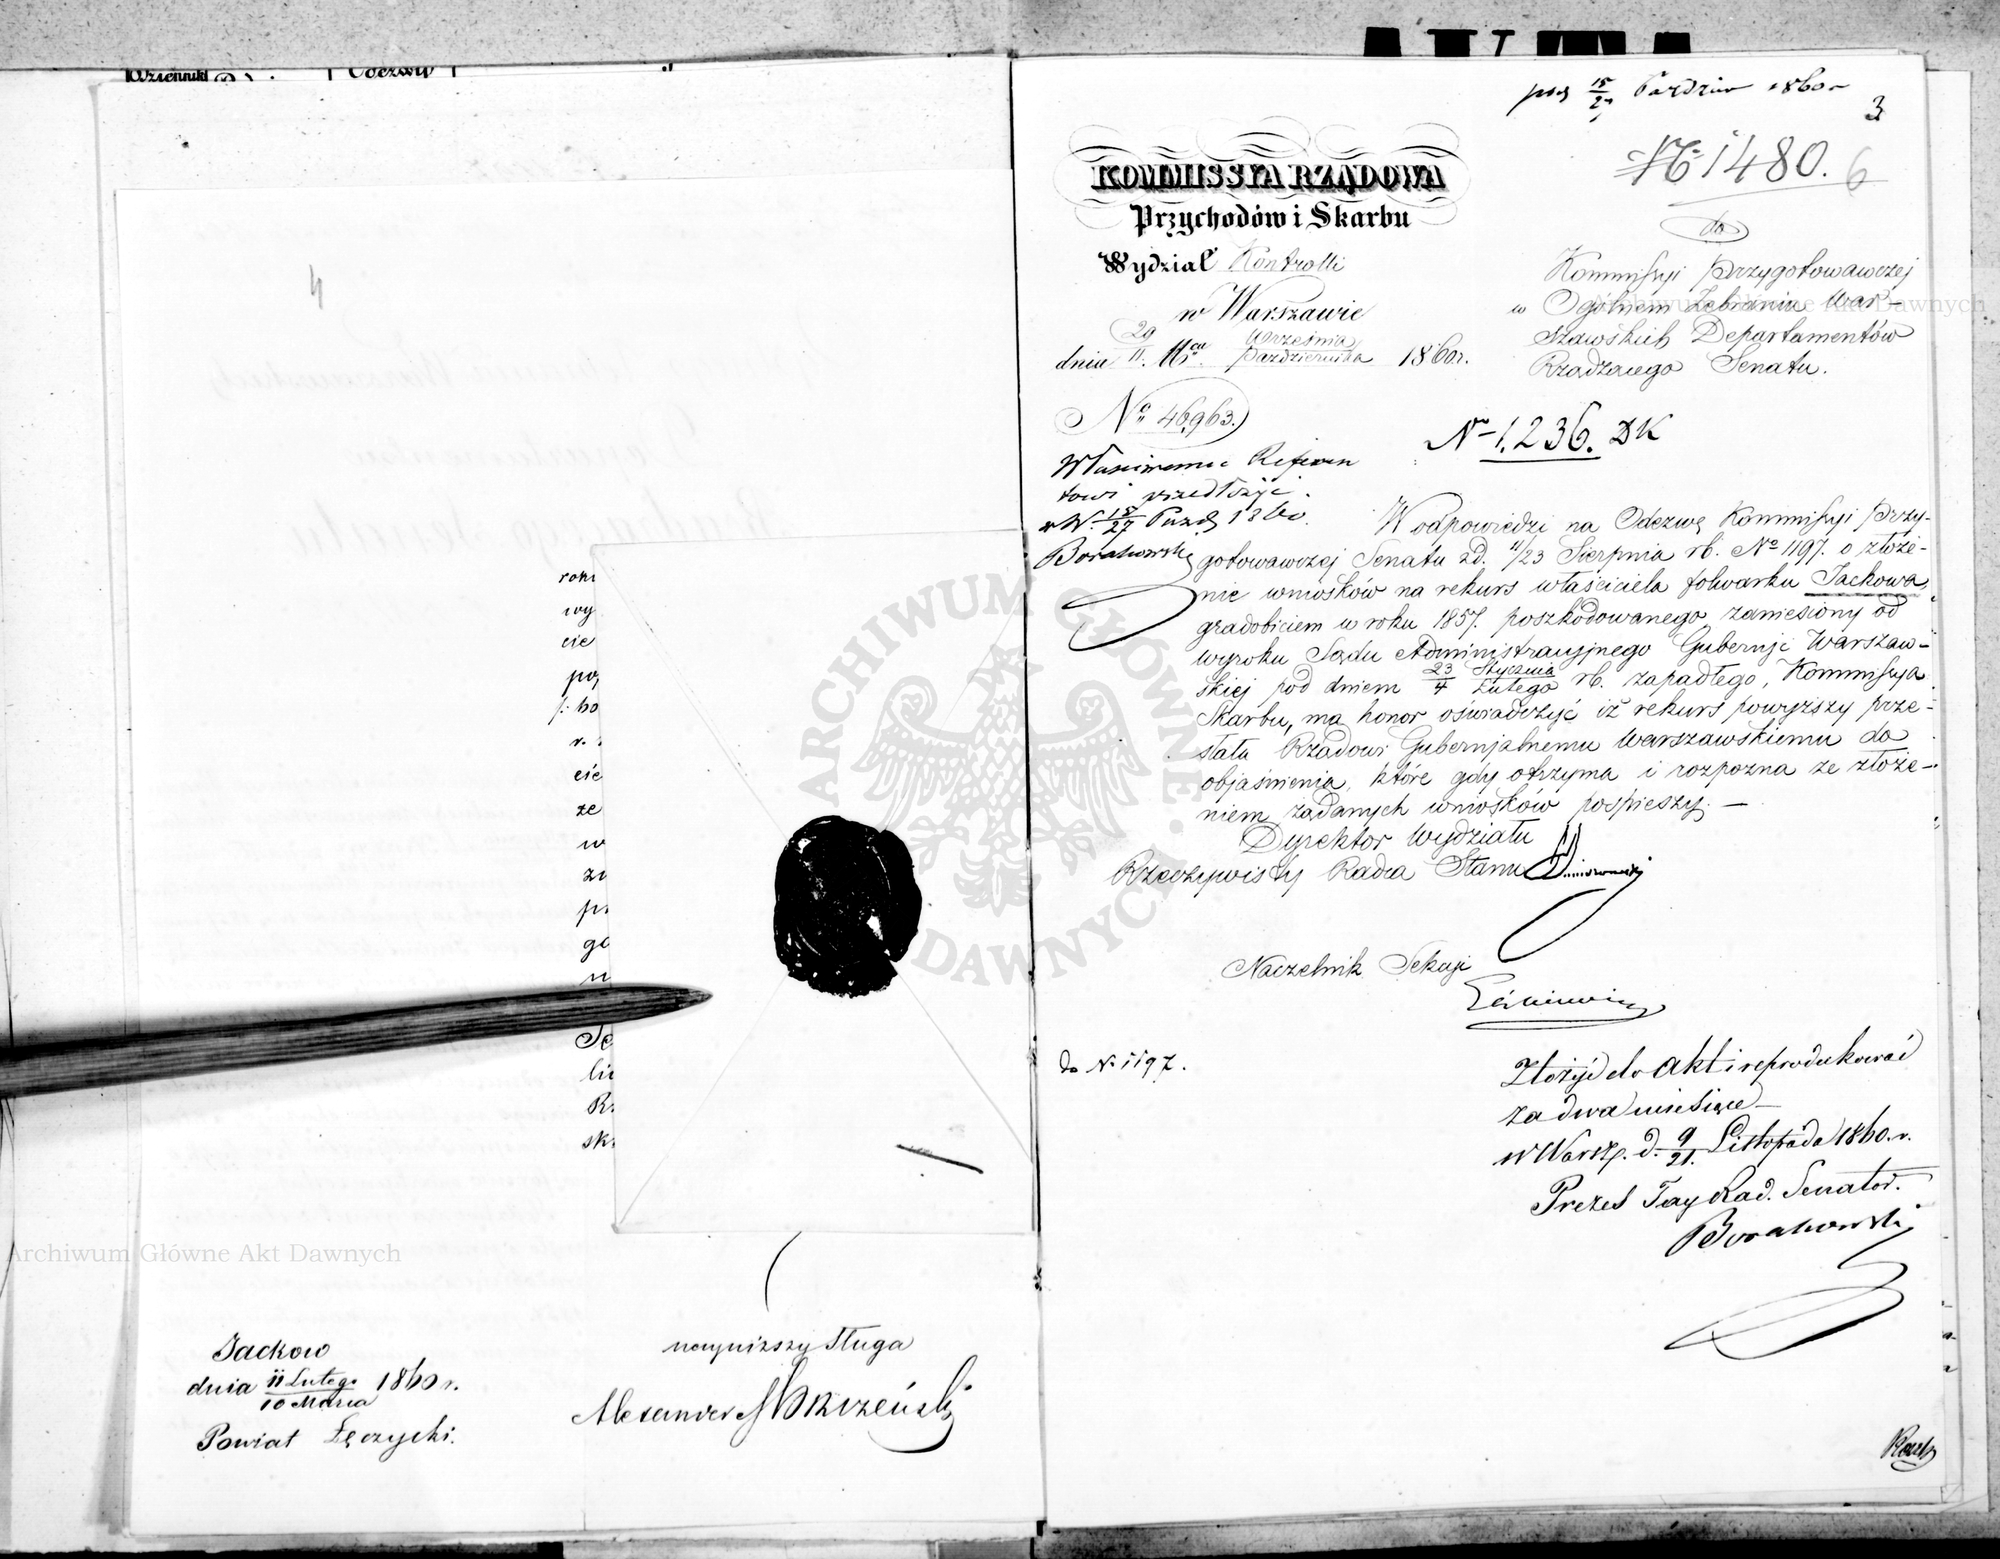 Dziennik
Odezwy
4
roku
wy
cie
po
/: bo
r.
cie
że
w
za
pr
go
Se
lu
Rz
sk
Jackow
dnia 11 Lutego / 10 Marca 1860 r.
Powiat Łęczycki.
nayniższy sługa
Alexander
Archiwum Główne Akt Dawnych
15/27 Paździer 1860 r
3
№ 1480. 6
KOMMISSYA RZĄDOWA
Przychodów i Skarbu
Wydział Kontrolli
w Warszawie
dnia 29/11. Mca Września / Października 1860 r.
No 46,963.
do
Kommissyi Przygotowawczej
w Ogólnem Zebraniu War-
szawskich Departamentów
Rządzącego Senatu.
Archiwum Główne Akt Dawnych
Nro 1,236. DK
Właściwemu Referen
towi przedłożyć.
w W. 15/27 Paźdz 1860.
Borakowski
W odpowiedzi na Odezwę Kommissyi Przy-
gotowawczej Senatu z d. 11/23 Sierpnia rb. No 1197. o złoże-
nie wniosków na rekurs właściciela folwarku Jackowa
gradobiciem w roku 1857. poszkodowanego, zaniesiony od
wyroku Sądu Administracyjnego Gubernji Warszaw-
skiej pod dniem 23 Stycznia / 4 Lutego rb. zapadłego, Kommissya
Skarbu, ma honor oświadczyć iż rekurs powyższy prze-
słała Rządowi Gubernjalnemu Warszawskiemu do
objaśnienia, które gdy otrzyma i rozpozna ze złoże-
niem żądanych wniosków pospieszy. —
Dyrektor Wydziału
Rzeczywisty Radca Stanu
Naczelnik Sekcyi
do No 1197.
Złożyć do akt i reprodukować
za dwa miesiące —
w Warsz. d. 9/21. Listopada 1860. r.
Prezes Tay Rad. Senator.
Borakowski
ARCHIWUM GŁÓWNE AKT DAWNYCH